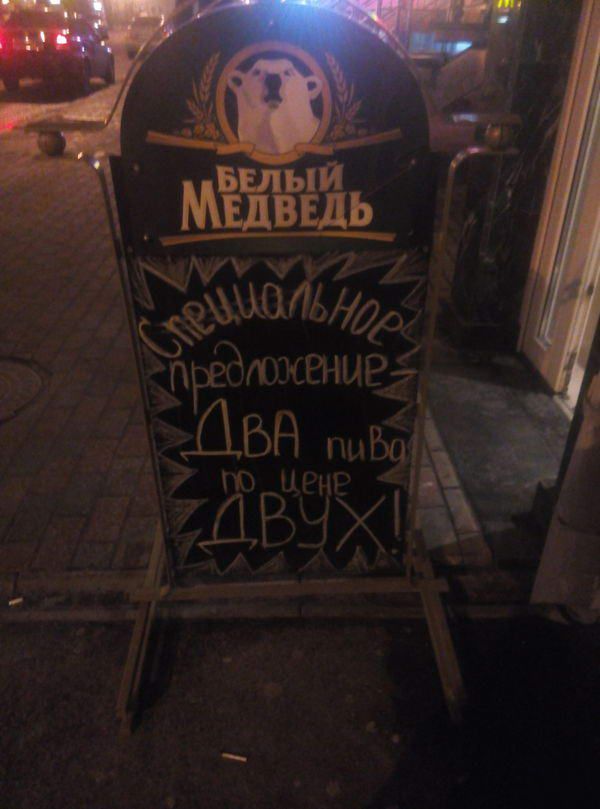 БЕЛЫЙ
МЕДВЕДЬ
Специальное
предложение
ДВА пива
по цене
ДВУХ!